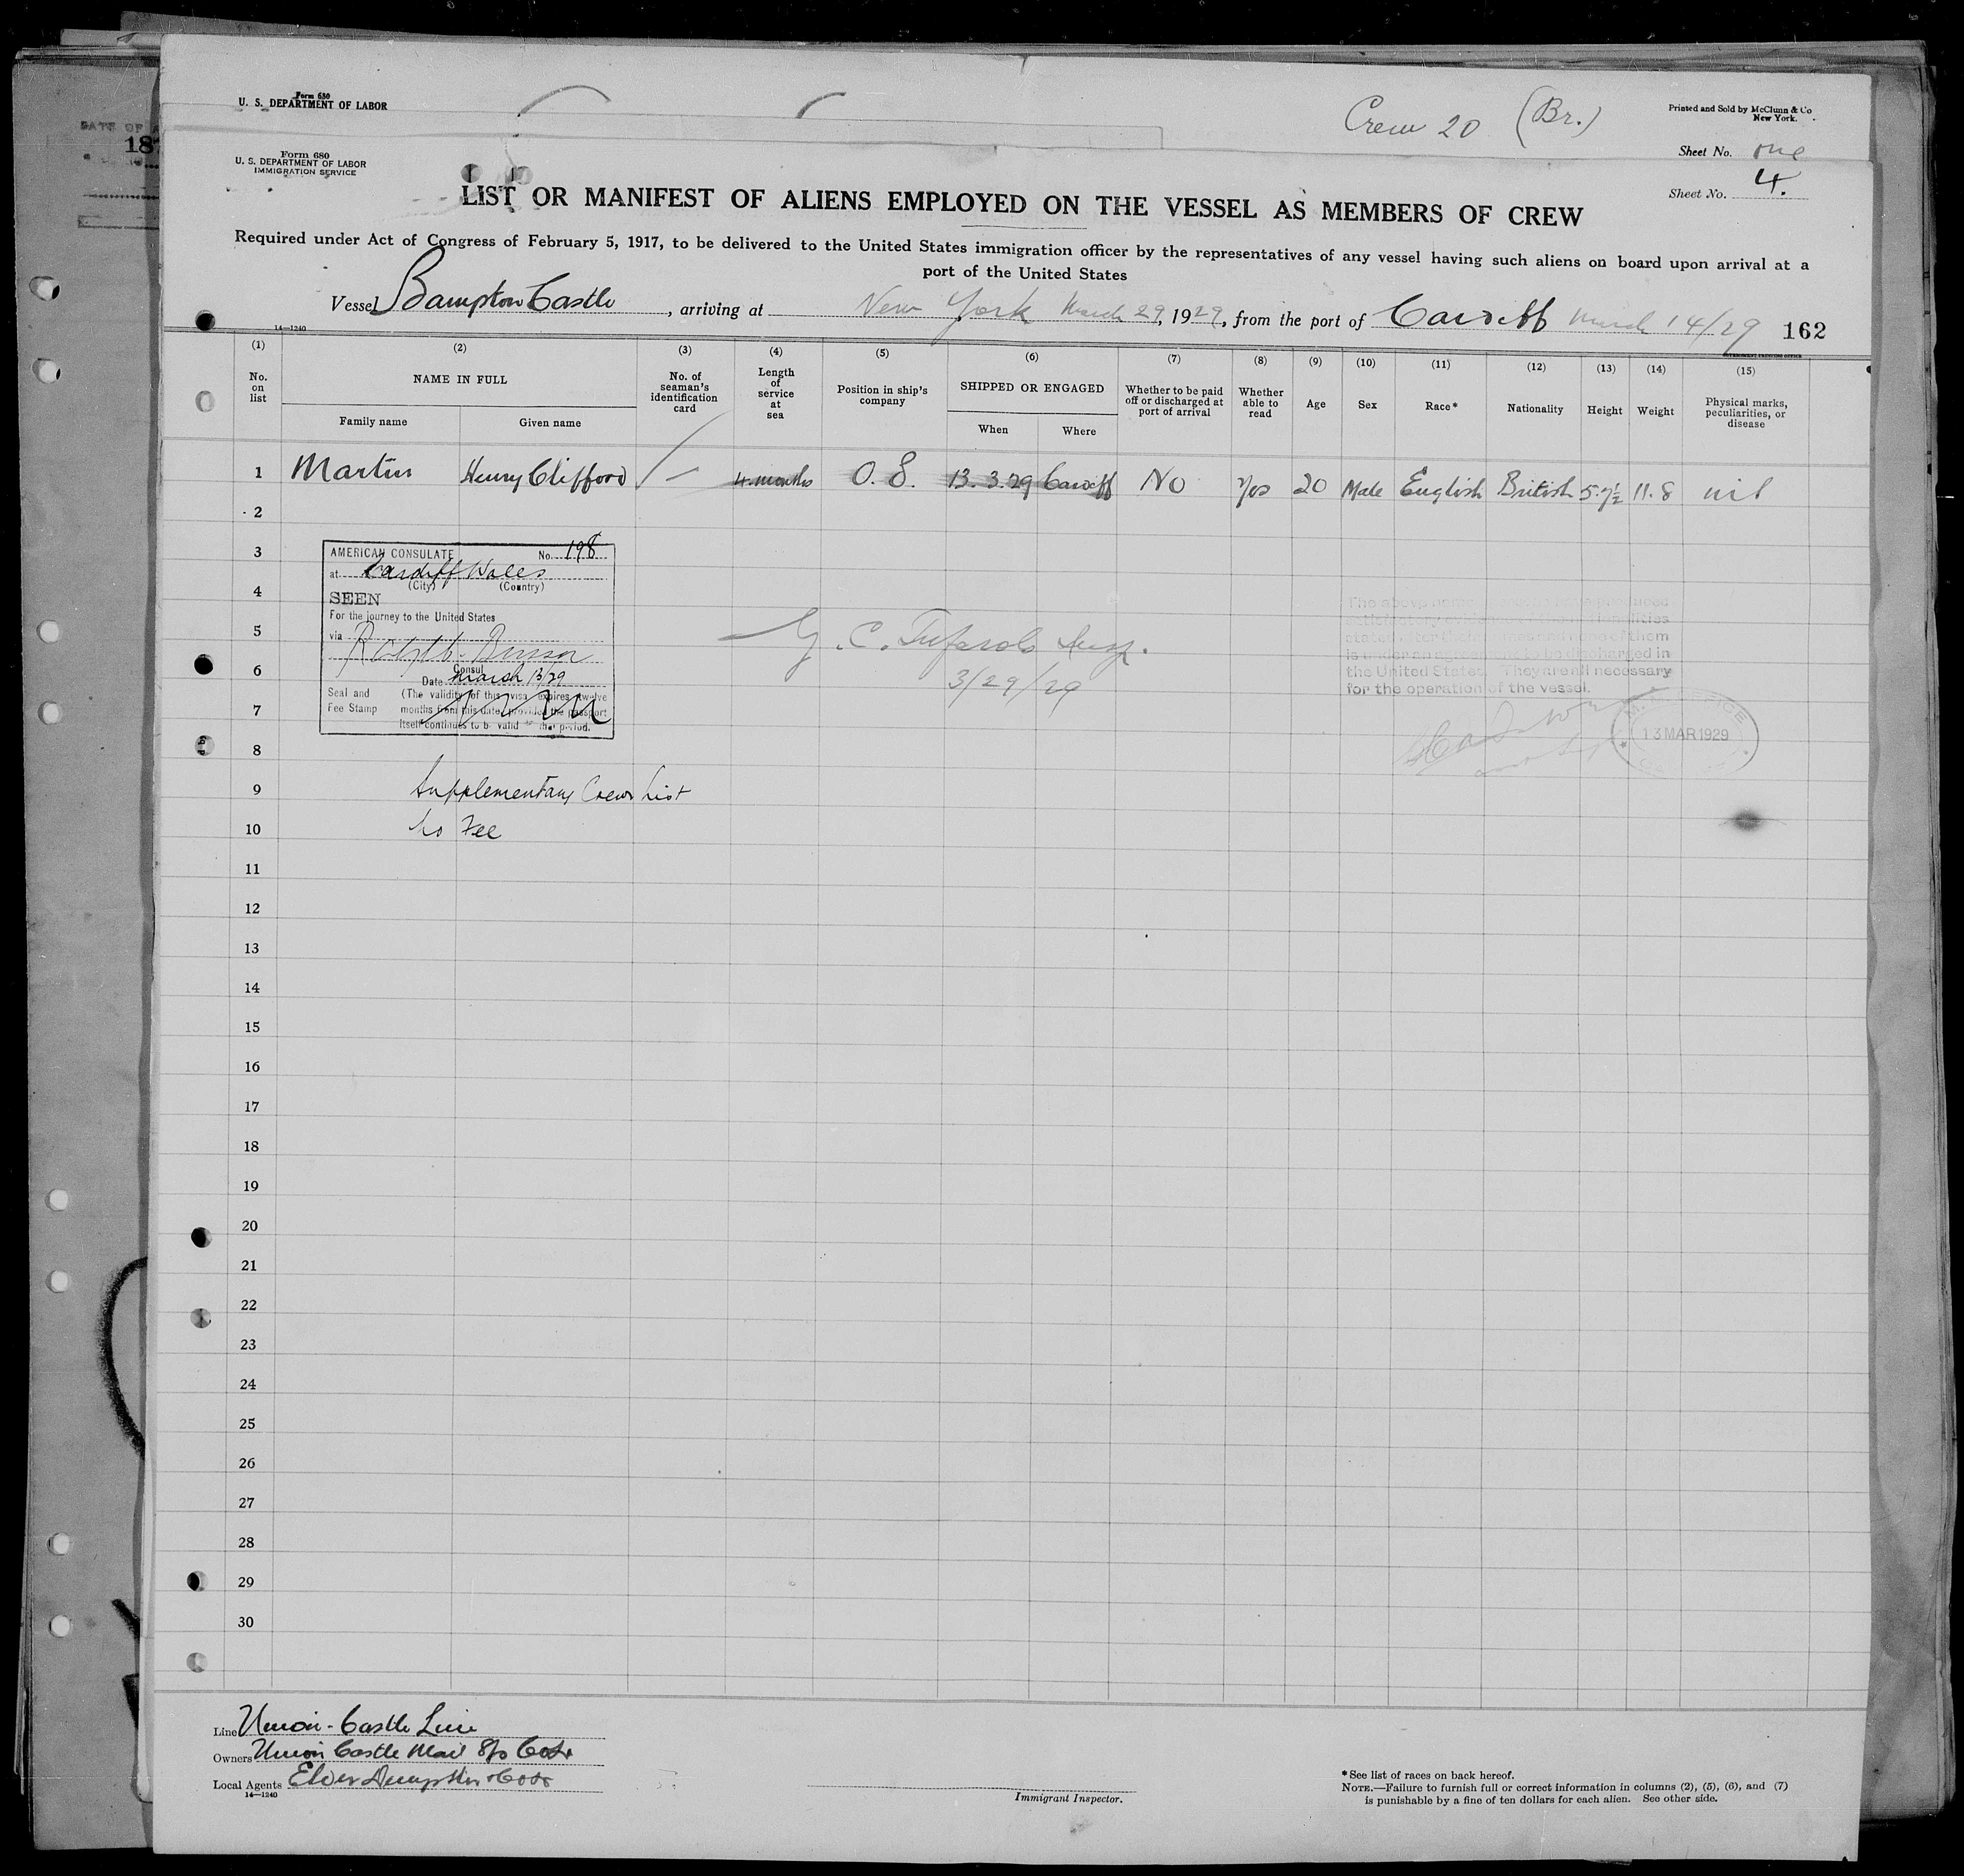 Form 630
U. S. DEPARTMENT OF LABOR
Crew 20 (Br.)
Printed and Sold by McClunn & Co
New York.
Sheet No. one
DATE OF
18
Form 680
U. S. DEPARTMENT OF LABOR
IMMIGRATION SERVICE
Sheet No. 4.
LIST OR MANIFEST OF ALIENS EMPLOYED ON THE VESSEL AS MEMBERS OF CREW
Required under Act of Congress of February 5, 1917, to be delivered to the United States immigration officer by the representatives of any vessel having such aliens on board upon arrival at a
port of the United States
Vessel Bampton Castle, arriving at New York March 29, 1929, from the port of Cardiff March 14/29 162
14—1240
(1) (2) (3) (4) (5) (6) (7) (8) (9) (10) (11) (12) (13) (14) (15)
No. on list
NAME IN FULL
Family name Given name
No. of seaman's identification card
Length of service at sea
Position in ship's company
SHIPPED OR ENGAGED
When Where
Whether to be paid off or discharged at port of arrival
Whether able to read
Age
Sex
Race*
Nationality
Height
Weight
Physical marks, peculiarities, or disease
1 Martin Henry Clifford — 4 months O.S. 13.3.29 Cardiff No Yes 20 Male English British 5.7½ 11.8 nil
2
3
4
5
6
7
8
9
10
11
12
13
14
15
16
17
18
19
20
21
22
23
24
25
26
27
28
29
30
AMERICAN CONSULATE No. 198
at Cardiff Wales
(City) (Country)
SEEN
For the journey to the United States
via
Consul
Date March 13/29
Seal and Fee Stamp
(The validity of this visa expires twelve
months from this date provided the passport
itself continues to be valid that period.
G. C. Insp.
3/29/29
is under an agreement to be discharged in
the United States. They are all necessary
for the operation of the vessel.
13 MAR 1929
Supplementary Crew List
No Fee
Line Union-Castle Line
Owners Union Castle Mail S/S Co Ld
Local Agents Elder Dempster & Co Ld
14—1240
Immigrant Inspector.
*See list of races on back hereof.
NOTE.—Failure to furnish full or correct information in columns (2), (5), (6), and (7)
is punishable by a fine of ten dollars for each alien. See other side.